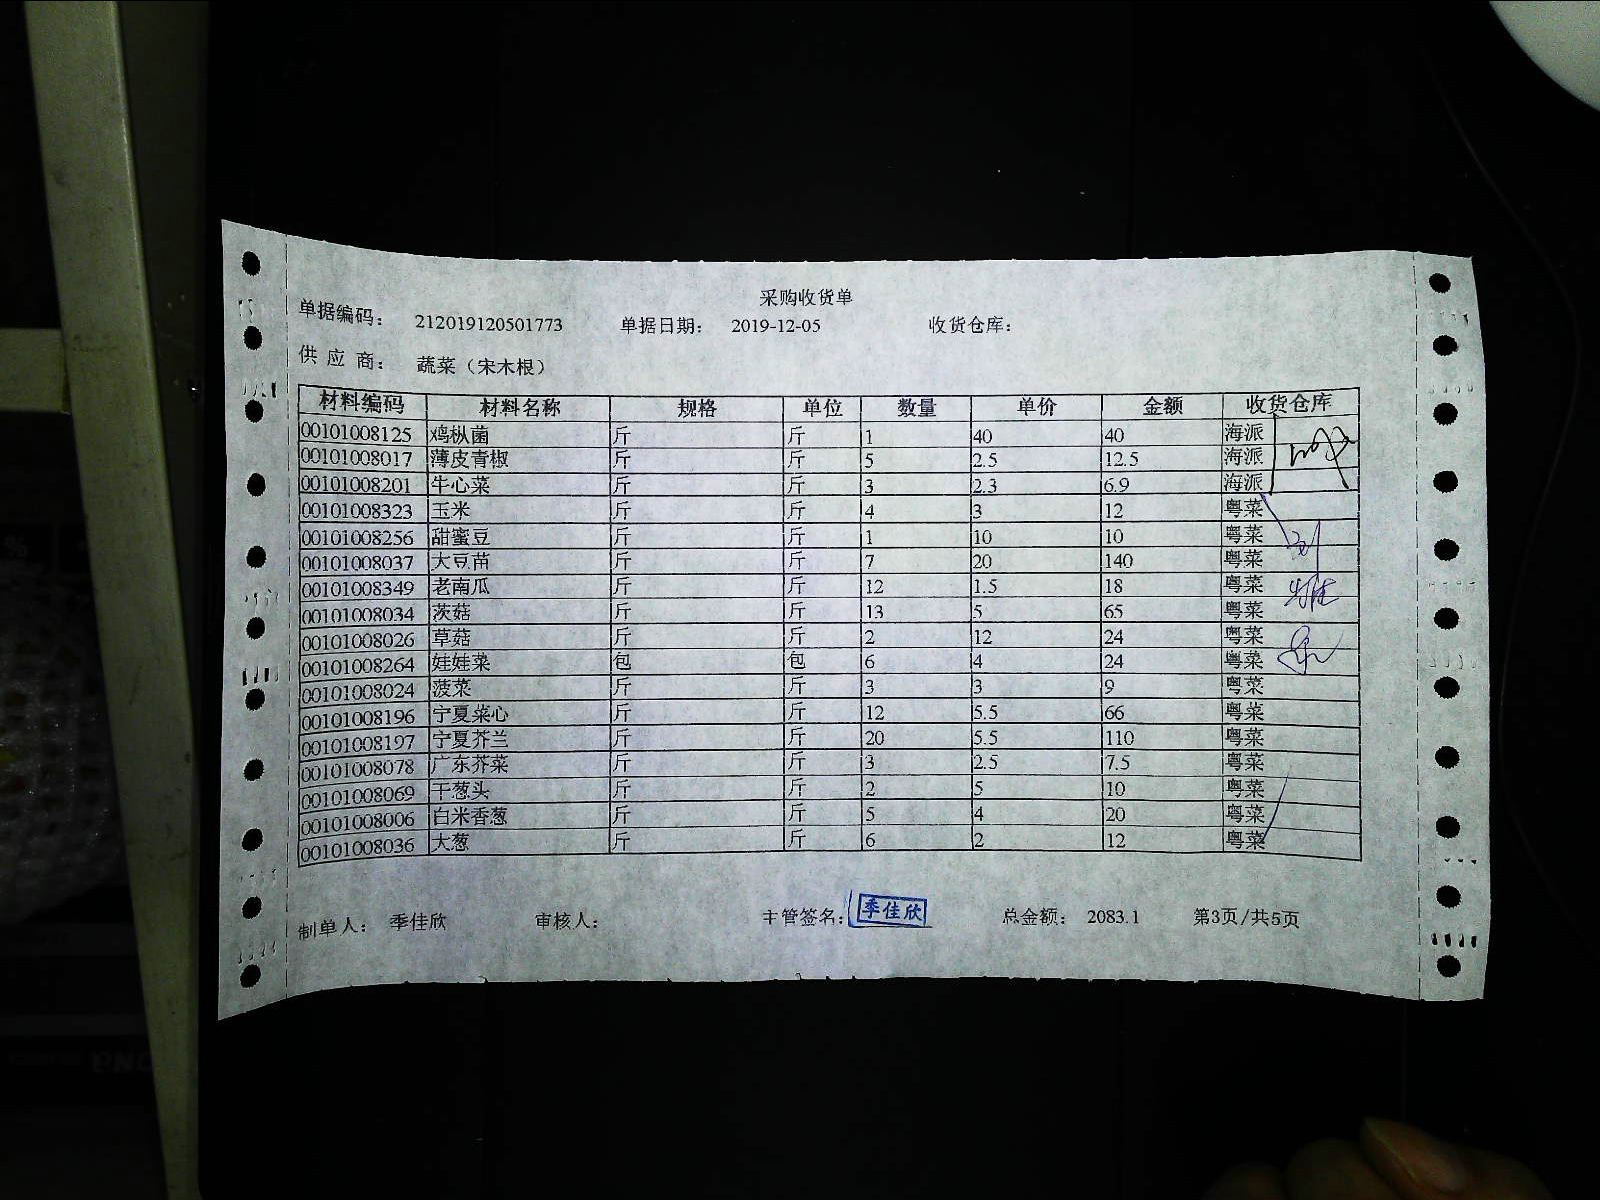 采购收货单
单据编码： 212019120501773 单据日期： 2019-12-05 收货仓库：
供 应 商： 蔬菜（宋木根）
材料编码 材料名称 规格 单位 数量 单价 金额 收货仓库
00101008125 鸡枞菌 斤 斤 1 40 40 海派
00101008017 薄皮青椒 斤 斤 5 2.5 12.5 海派
00101008201 牛心菜 斤 斤 3 2.3 6.9 海派
00101008323 玉米 斤 斤 4 3 12 粤菜
00101008256 甜蜜豆 斤 斤 1 10 10 粤菜
00101008037 大豆苗 斤 斤 7 20 140 粤菜
00101008349 老南瓜 斤 斤 12 1.5 18 粤菜
00101008034 茨菇 斤 斤 13 5 65 粤菜
00101008026 草菇 斤 斤 2 12 24 粤菜
00101008264 娃娃菜 包 包 6 4 24 粤菜
00101008024 菠菜 斤 斤 3 3 9 粤菜
00101008196 宁夏菜心 斤 斤 12 5.5 66 粤菜
00101008197 宁夏芥兰 斤 斤 20 5.5 110 粤菜
00101008078 广东芥菜 斤 斤 3 2.5 7.5 粤菜
00101008069 干葱头 斤 斤 2 5 10 粤菜
00101008006 白米香葱 斤 斤 5 4 20 粤菜
00101008036 大葱 斤 斤 6 2 12 粤菜
制单人： 季佳欣 审核人： 主管签名： 季佳欣 总金额： 2083.1 第3页/共5页